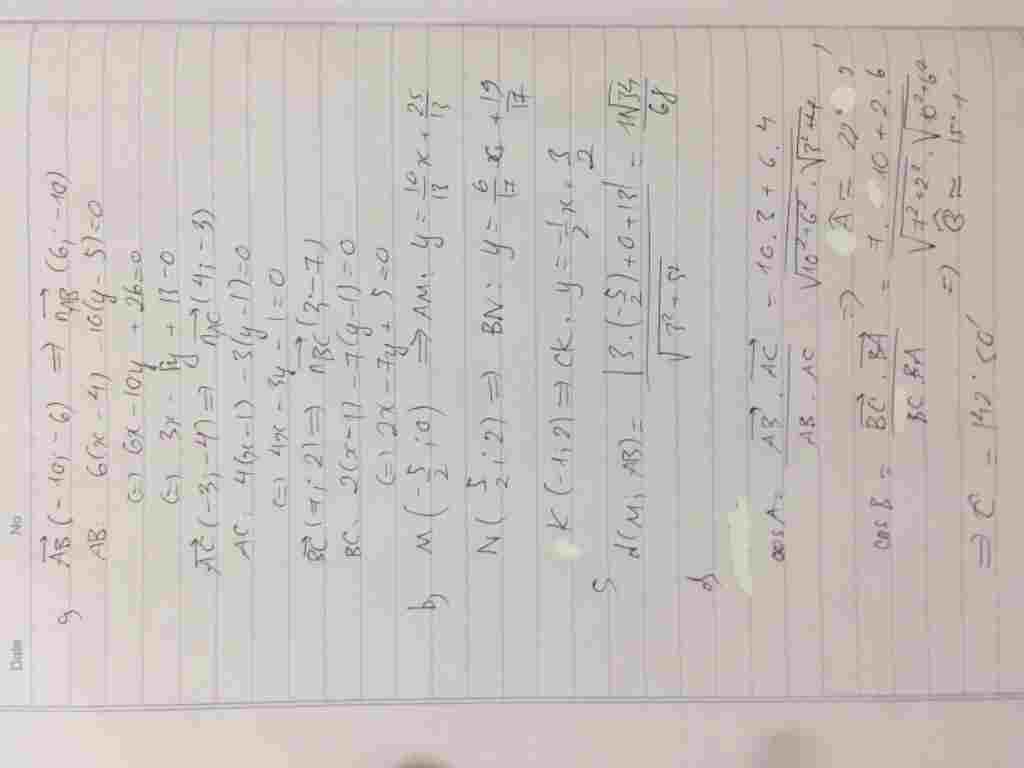 Date No
a, AB(-10; -6) => nAB(6; -10)
AB 6(x-4) -10(y-5)=0
(=) 6x-10y + 26=0
(=) 3x - 5y + 13=0
AC(-3; -4) => nAC(4; -3)
AC: 4(x-1) -3(y-1)=0
(=) 4x-3y-1=0
BC(7; 2) => nBC(2; -7)
BC: 2(x-1) -7(y-1)=0
(=) 2x-7y+5=0
b, M(-5/2; 0) => AM: y = 10/13 x + 25/13
N(5/2; 2) => BN: y = 6/17 x + 19/17
K(-1; 2) => CK: y = -1/2 x + 3/2
d(M, AB) = |3.(-5/2)+0+13| / = 11√34/68
d,
cos A = AB.AC / AB.AC = 10.3+6.4 / √10²+6².√3²+4²
=> A = 22°
cos B = BC.BA / BC.BA = 7.10+2.6 / √7²+2².√10²+6²
=> B ≈
=> C =